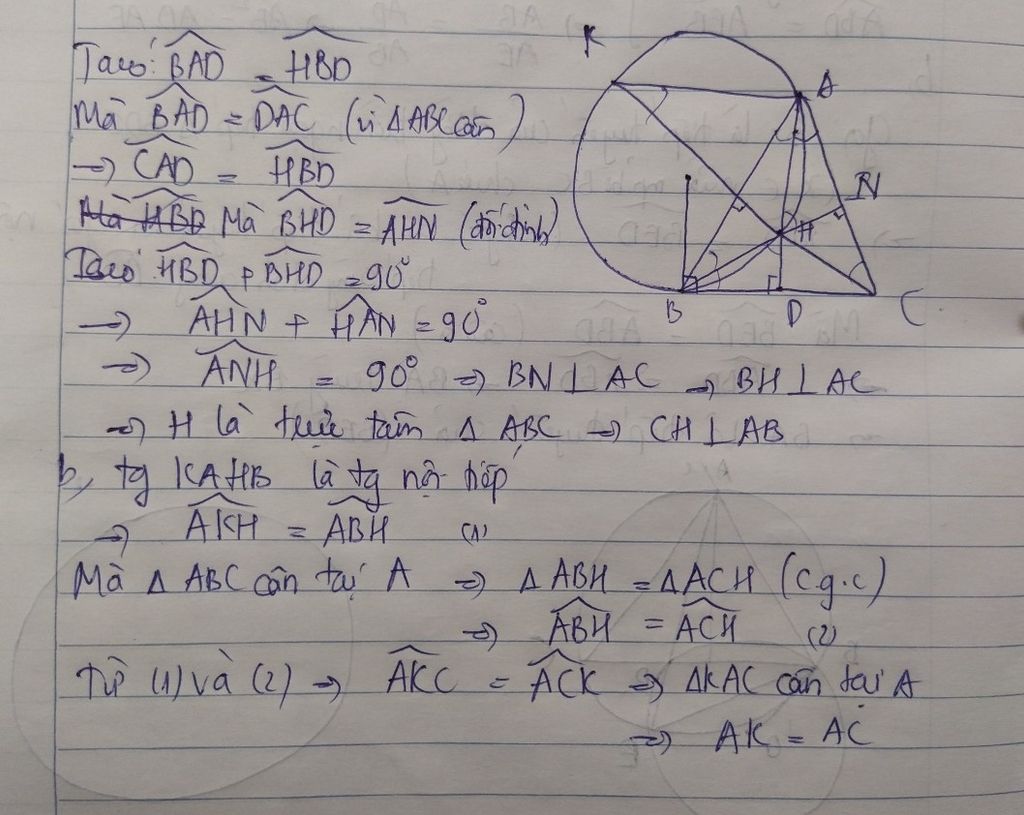 Ta có: BAD = HBD
Mà BAD = DAC (vì Δ ABC cân)
→ CAD = HBD
Mà HBD Mà BHD = AHN (đối đỉnh)
Ta có HBD + BHD = 90°
→ AHN + HAN = 90°
→ ANH = 90° → BN ⊥ AC → BH ⊥ AC
→ H là trực tâm Δ ABC → CH ⊥ AB
b, tg KAHB là tg nội tiếp
→ AKH = ABH (1)
Mà Δ ABC cân tại A → Δ ABH = Δ ACH (c.g.c)
→ ABH = ACH (2)
Từ (1) và (2) → AKC = ACK → ΔKAC cân tại A
→ AK = AC
K
A
N
H
B
D
C